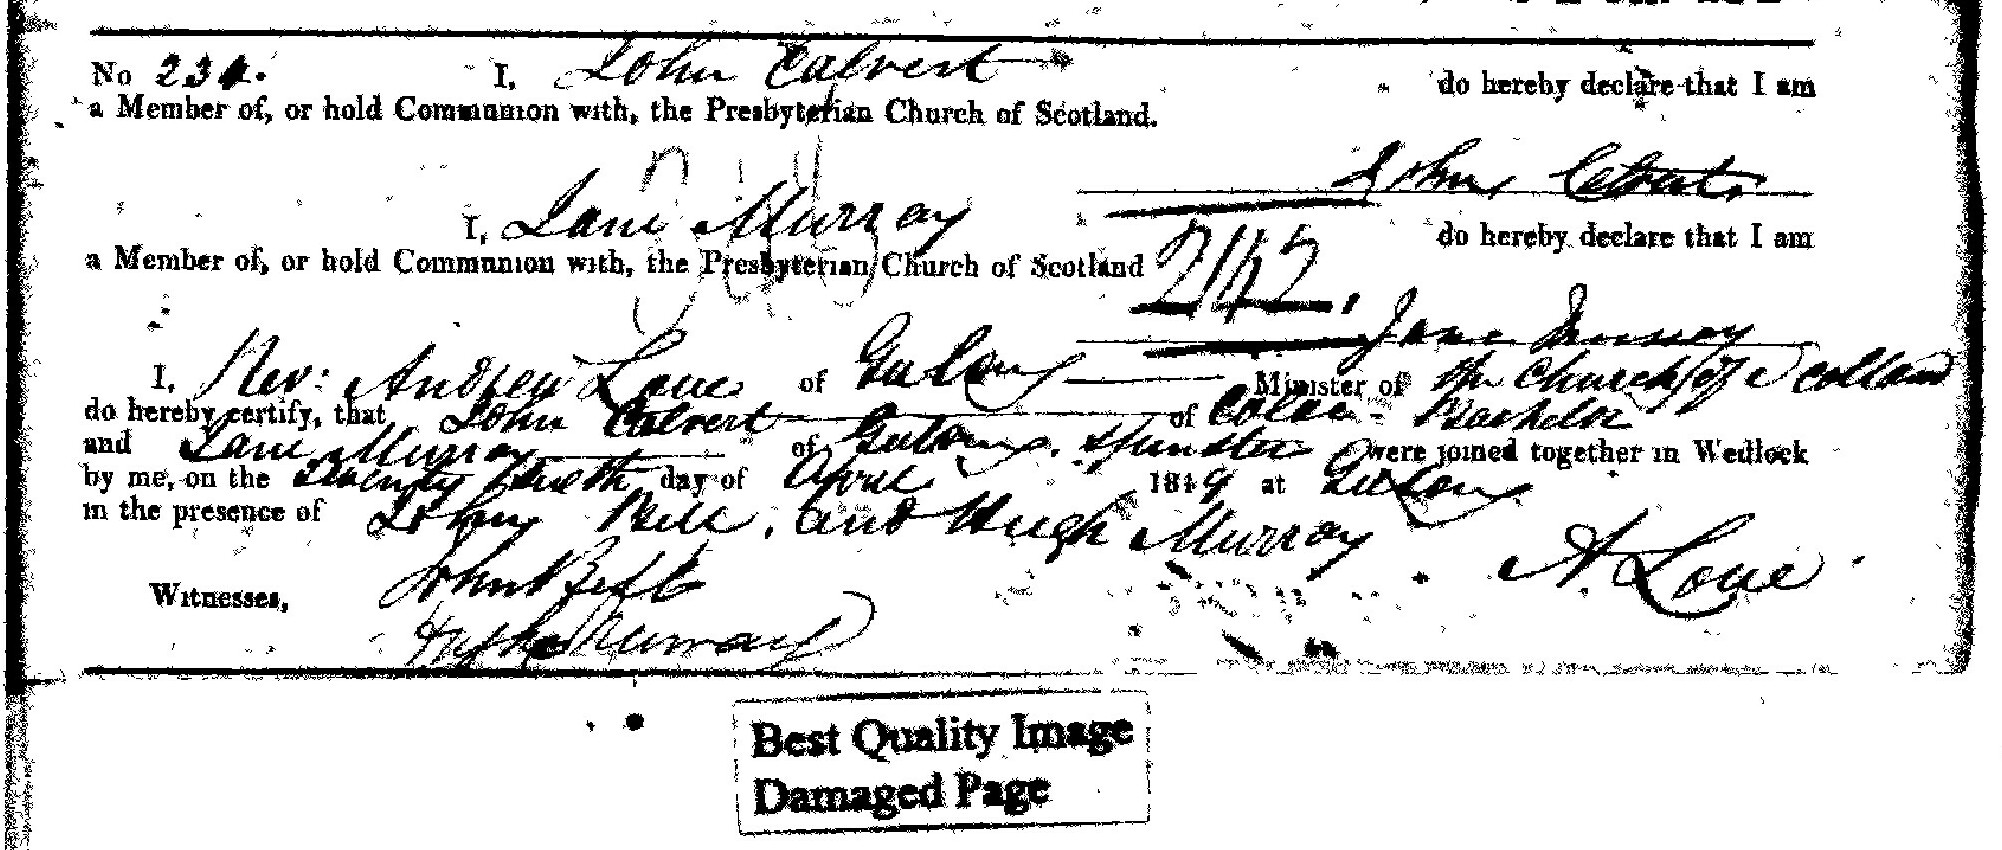 No 23 . I, John Calvert do hereby declare that I am
a Member of, or hold Communion with, the Presbyterian Church of Scotland.
John
I, Jane Murray do hereby declare that I am
a Member of, or hold Communion with, the Presbyterian Church of Scotland
242.
Jane Murray
I, Rev: Andrew Love of Geelong Minister of the Church of Scotland
do hereby certify, that John Calvert of Colac Bachelor
and Jane Murray of Geelong. Spinster were joined together in Wedlock
by me, on the Twenty day of April 1849 at Geelong.
in the presence of John , and Hugh Murray
A. Love
Witnesses, John
Hugh Murray
Best Quality Image
Damaged Page